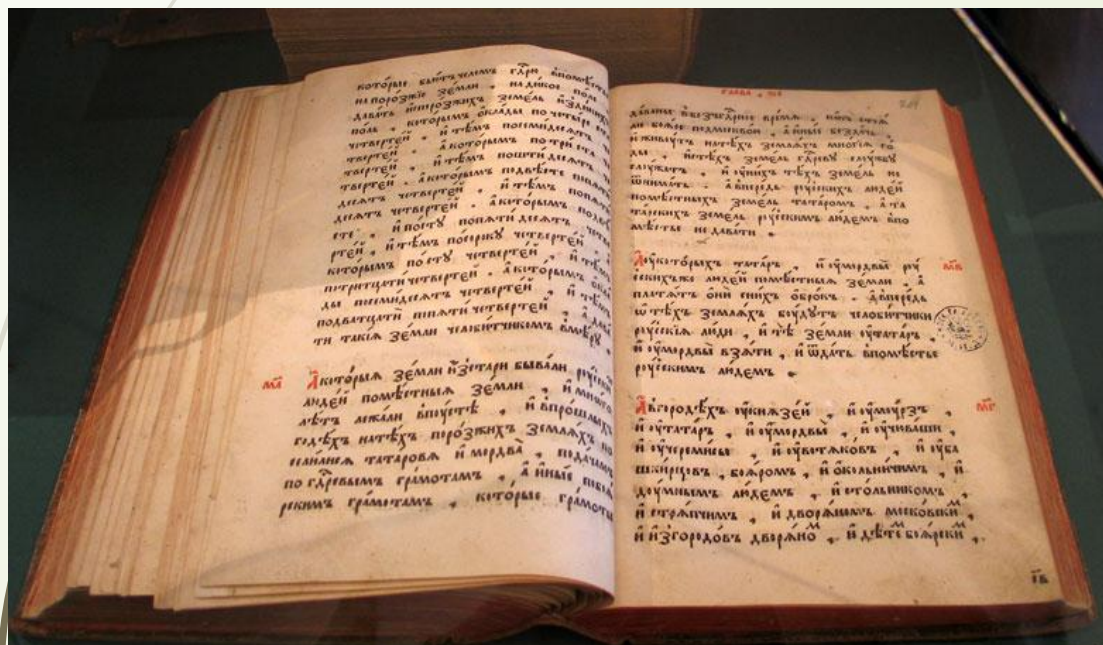 кото́рые бью́тъ челомъ гдрю
на поро́зжїе зе́мли , на дикое поле
дава́ть и҆с поро́зжихъ земе́ль и҆з дикихъ
поль , кото́рымъ ѡ҆кла́ды по четы́ре
четверте́й , и҆ тѣ́мъ по семидеся́тъ че
твертей . а҆ кото́рымъ по три ста че
твертей , и҆ тѣ́мъ по шти деся́тъ че
тверте́й . а҆ кото́рымъ по двѣсте по пяти
деся́тъ четвертей , и҆ тѣ́мъ по пяти
деся́тъ четвертей . а҆ кото́рымъ по двѣ
сте , и҆ по сту пяти деся́тъ четве
рте́й , и҆ тѣ́мъ по со́року четверте́й , и҆
кото́рымъ по сту четверте́й , и҆ тѣмъ
по три́тцати четверте́й . а҆ кото́рымъ ѡ҆кла
ды по семидеся́тъ четверте́й , и҆ тѣмъ
по два́тцети пяти четверте́й , а҆ дава
ти такїя зе́мли челоби́тчикомъ в мѣру .
ма А҆ кото́рыя зе́мли и҆зстари быва́ли ру́ских
люде́й помѣ́стныя зе́мли , и҆ мно́го
лѣ́тъ лежа́ли впу́стѣ , и҆ в про́шлыхъ
годѣ́хъ на тѣ́хъ поро́зжихъ земля́хъ по
сели́лися татаровя и҆ мордва̀ , по да́чам
по гдревымъ гра́мотамъ , а҆ и҆ны́е по боя
рскимъ гра́мотамъ , кото́рые гра́моты
глава , ѕ҃і
да́ваны в безгдрное вре́мя , ка́къ стоя́
ли боя́ре под москво́ю , а҆ и҆ны́е без да́чь
и҆ живу́тъ на тѣ́хъ земля́хъ мно́гїя го́
ды , и҆ с тѣ́хъ земе́ль гдреву слу́жбу
слу́жатъ , и҆ у҆ ни́хъ тѣ́хъ земе́ль не
ѿнима́ть . а҆ впере́дь ру́сскихъ люде́й
помѣ́стныхъ земе́ль тата́ромъ , а҆ та
та́рскихъ земе́ль ру́сскимъ лю́демъ в по
мѣ́стье не дава́ти .
А҆ у҆ кото́рыхъ тата́ръ , и҆ у҆ мордвы̀ ру́ мв
сскихъ же люде́й помѣ́стныя зе́мли , а҆
пла́тятъ ѻ҆нѝ с ни́хъ ѻ҆бро́къ . а҆ впере́дь
ѡ҆ тѣ́хъ земля́хъ бу́дутъ челоби́тчики
ру́сскїя лю́ди , и҆ тѣ̀ зе́мли у҆ тата́ръ ,
и҆ у҆ мордвы̀ взя́ти , и҆ ѿда́ть в помѣ́стье
ру́сскимъ лю́демъ .
А҆ в городѣ́хъ у҆ князе́й , и҆ у҆ му́рзъ , мг
и҆ у҆ тата́ръ , и҆ у҆ мордвы̀ , и҆ у҆ чува́ши ,
и҆ у҆ череми́сы , и҆ у҆ вотяко́въ , и҆ у҆ ба
шки́рцовъ , боя́ромъ , и҆ ѻ҆ко́льничимъ , и҆
ду́мнымъ лю́демъ , и҆ сто́льникомъ ,
и҆ стря́пчимъ , и҆ дворя́номъ моско́вским ,
и҆ и҆з городо́въ дворя́ном , и҆ дѣ́тем боя́рским ,